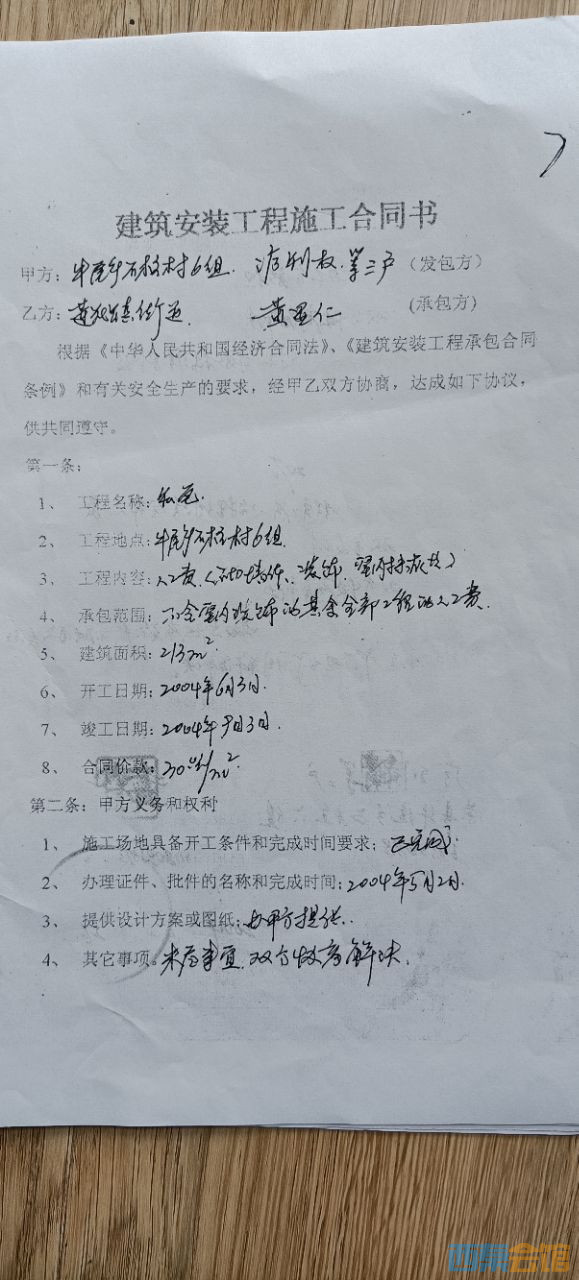 建筑安装工程施工合同书
甲方：石柱村6组 等三户（发包方）
乙方：黄 仁（承包方）
根据《中华人民共和国经济合同法》、《建筑安装工程承包合同
条例》和有关安全生产的要求，经甲乙双方协商，达成如下协议，
供共同遵守。
第一条：
1、 工程名称：私宅.
2、 工程地点：石柱村6组.
3、 工程内容：人工费（
4、 承包范围：不含室内装饰的其余全部工程的人工费.
5、 建筑面积：213m².
6、 开工日期：2004年6月3日.
7、 竣工日期：2004年9月3日.
8、 合同价款：/m².
第二条：甲方义务和权利
1、 施工场地具备开工条件和完成时间要求：已完成.
2、 办理证件、批件的名称和完成时间：2004年5月2日.
3、 提供设计方案或图纸：由甲方提供.
4、 其它事项。未尽事宜.双方协商解决.
西祠会馆